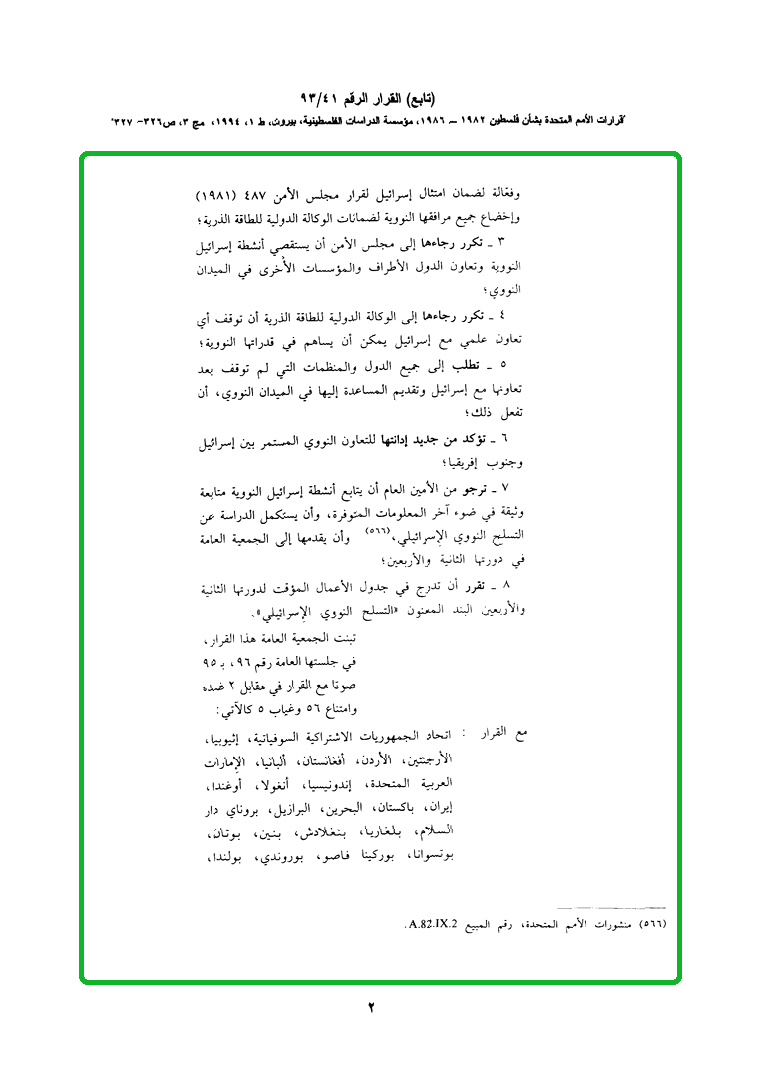 (تابع) القرار الرقم ٩٣/٤١
قرارات الأمم المتحدة بشأن فلسطين ١٩٨٢ – ١٩٨٦، مؤسسة الدراسات الفلسطينية، بيروت، ط ١، ١٩٩٤، مج ٣، ص٣٢٦- ٣٢٧
وفعّالة لضمان امتثال إسرائيل لقرار مجلس الأمن ٤٨٧ (١٩٨١)
وإخضاع جميع مرافقها النووية لضمانات الوكالة الدولية للطاقة الذرية؛
٣ ـ تكرر رجاءها إلى مجلس الأمن أن يستقصي أنشطة إسرائيل
النووية وتعاون الدول الأطراف والمؤسسات الأُخرى في الميدان
النووي؛
٤ ـ تكرر رجاءها إلى الوكالة الدولية للطاقة الذرية أن توقف أي
تعاون علمي مع إسرائيل يمكن أن يساهم في قدراتها النووية؛
٥ ـ تطلب إلى جميع الدول والمنظمات التي لم توقف بعد
تعاونها مع إسرائيل وتقديم المساعدة إليها في الميدان النووي، أن
تفعل ذلك؛
٦ ـ تؤكد من جديد إدانتها للتعاون النووي المستمر بين إسرائيل
وجنوب إفريقيا؛
٧ ـ ترجو من الأمين العام أن يتابع أنشطة إسرائيل النووية متابعة
وثيقة في ضوء آخر المعلومات المتوفرة، وأن يستكمل الدراسة عن
التسلح النووي الإسرائيلي،(٥٦٦) وأن يقدمها إلى الجمعية العامة
في دورتها الثانية والأربعين؛
٨ ـ تقرر أن تدرج في جدول الأعمال المؤقت لدورتها الثانية
والأربعين البند المعنون «التسلح النووي الإسرائيلي».
تبنت الجمعية العامة هذا القرار،
في جلستها العامة رقم ٩٦، بـ ٩٥
صوتا مع القرار في مقابل ٢ ضده
وامتناع ٥٦ وغياب ٥ كالآتي:
مع القرار : اتحاد الجمهوريات الاشتراكية السوفياتية، إثيوبيا،
الأرجنتين، الأردن، أفغانستان، ألبانيا، الإمارات
العربية المتحدة، إندونيسيا، أنغولا، أوغندا،
إيران، باكستان، البحرين، البرازيل، بروناي دار
السلام، بلغاريا، بنغلادش، بنين، بوتان،
بوتسوانا، بوركينا فاصو، بوروندي، بولندا،
(٥٦٦) منشورات الأمم المتحدة، رقم المبيع A.82.IX.2.
٢